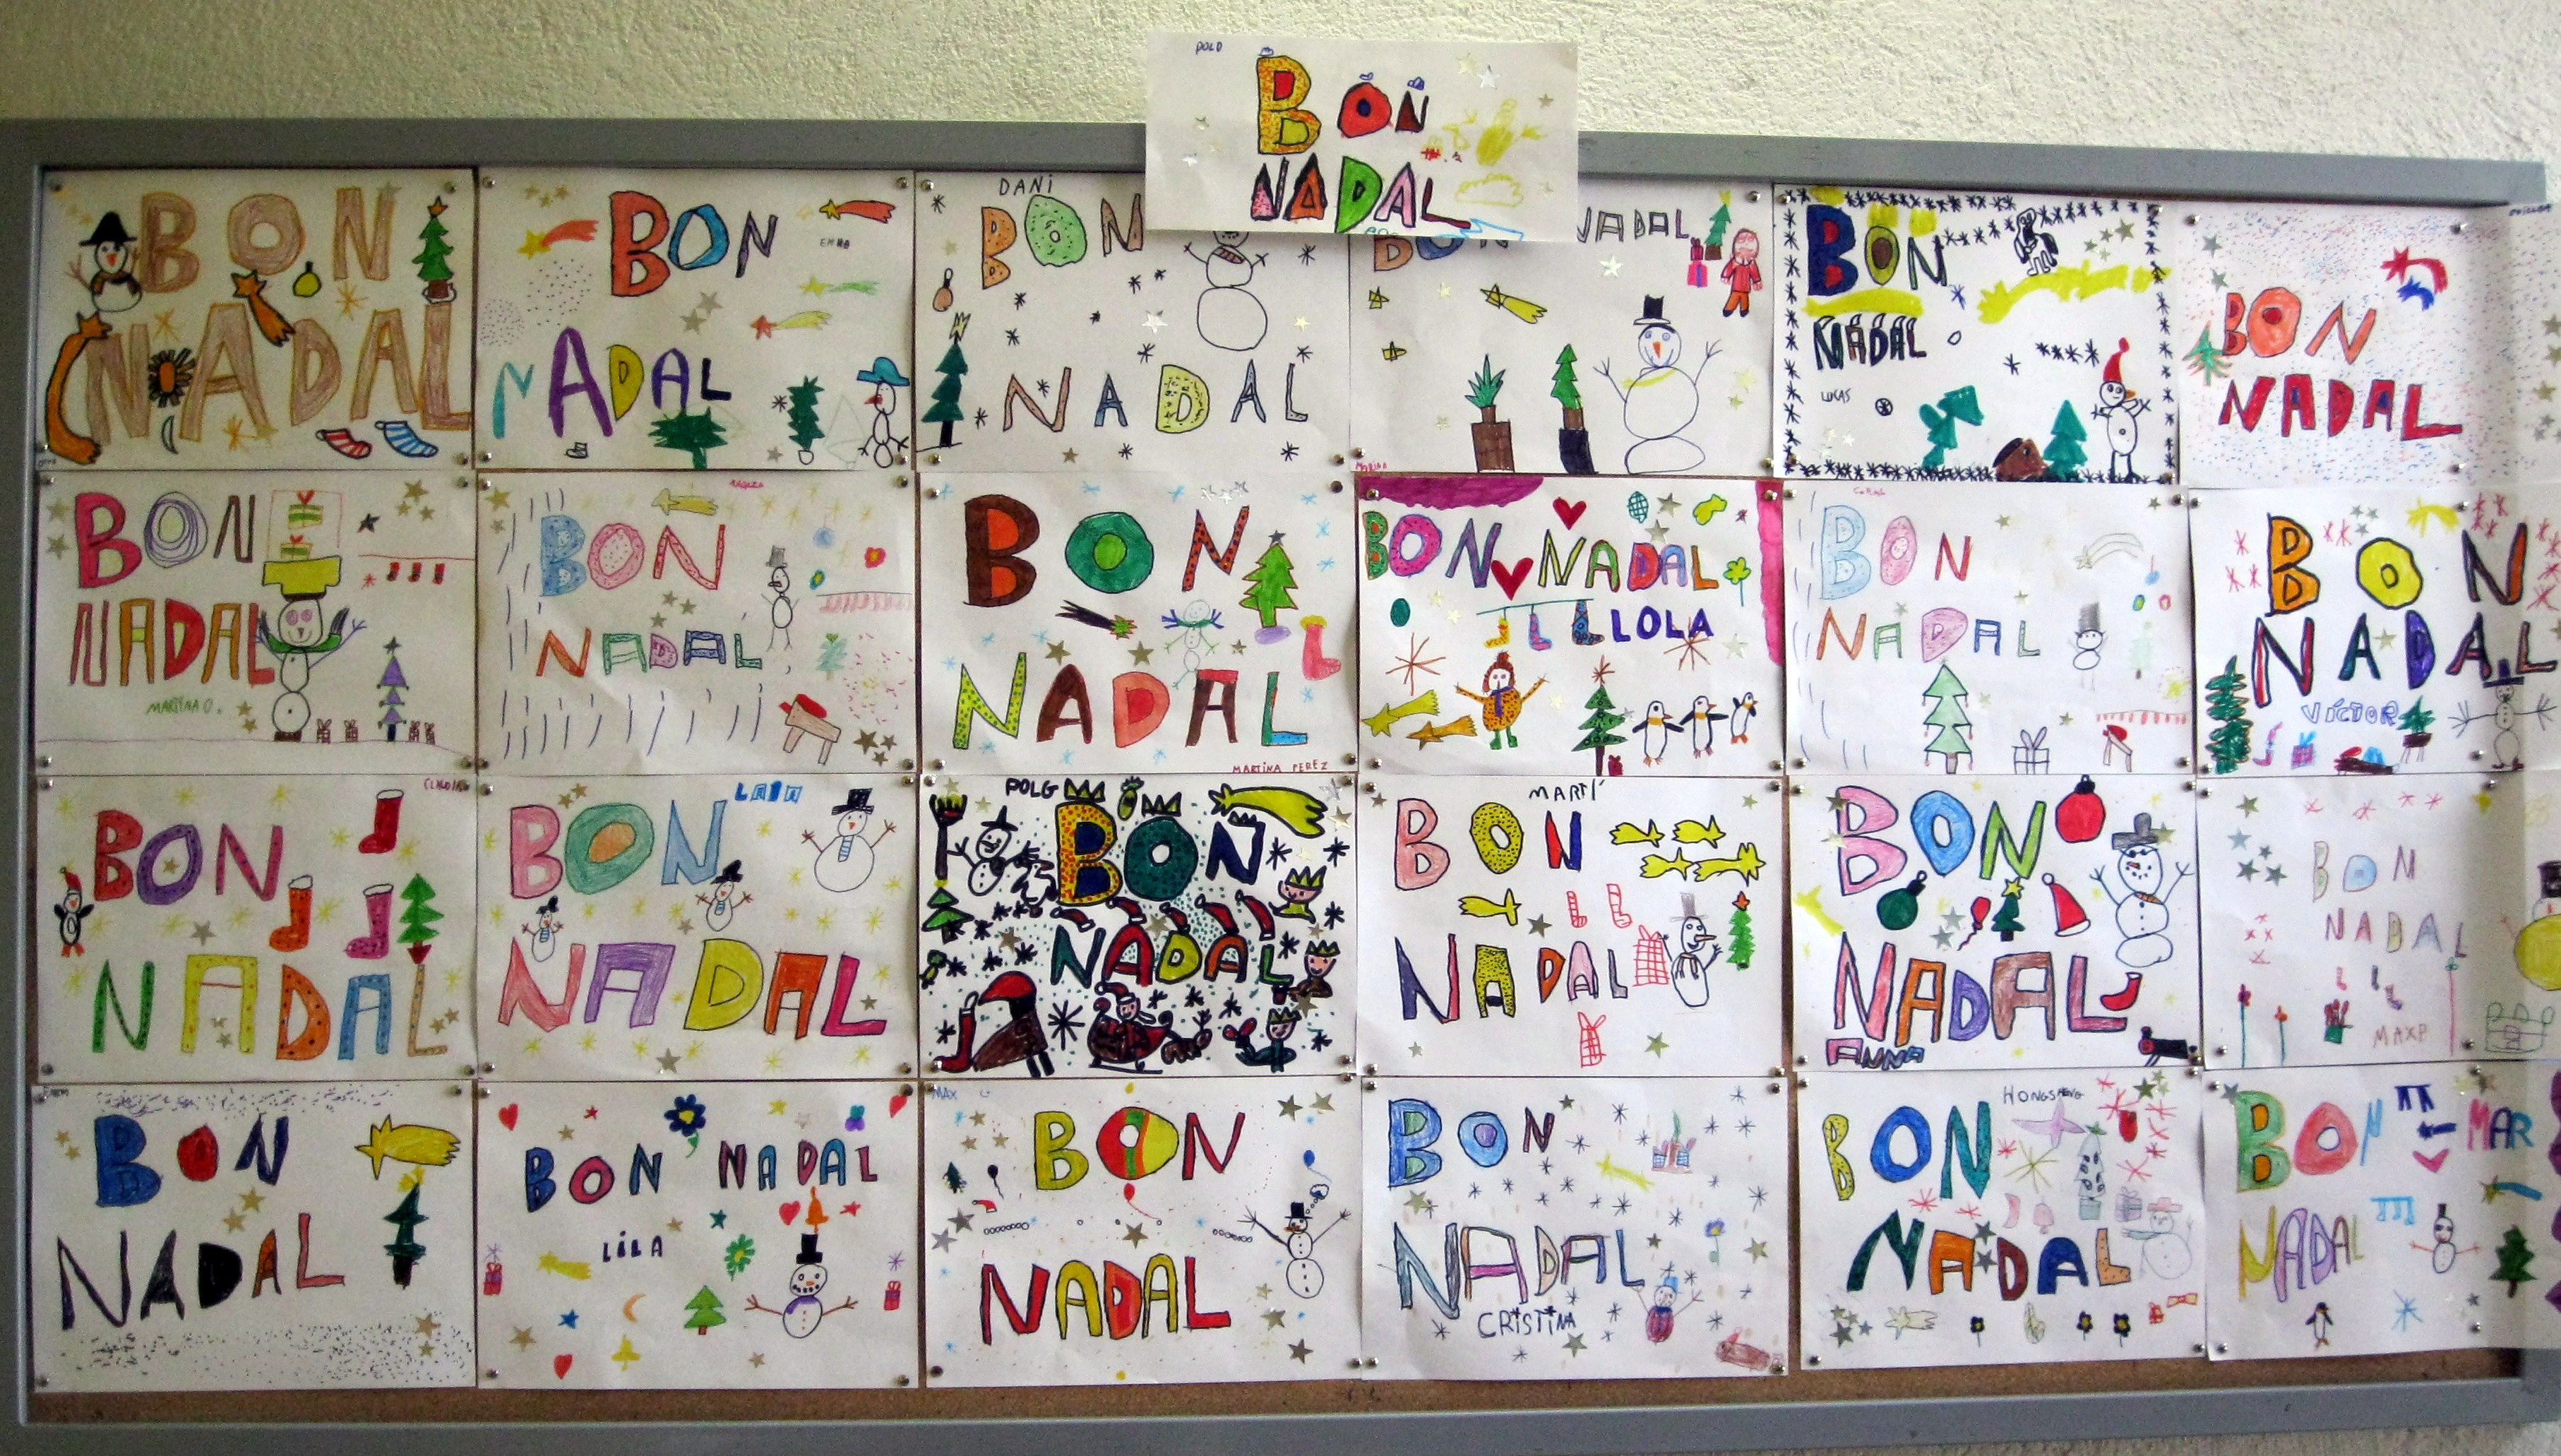 POLD
BON
NADAL
BON
NADAL
BON
EMMA
NADAL
DANI
BON
NADAL
BON NADAL
MARINA
BON
NADAL
LUCAS
BON
NADAL
BON
NADAL
MARTINA O.
BON
NADAL
BON
NADAL
MARTINA PEREZ
BON NADAL
LOLA
BON
NADAL
BON
NADAL
VÍCTOR
CLAUDIA
BON
NADAL
LAIA
BON
NADAL
POLG
BON
NADAL
MARTÍ
BON
NADAL
BON
NADAL
ANNA
BON
NADAL
MAXP
BON
NADAL
BON NADAL
LILA
MAX
BON
NADAL
BON
NADAL
CRISTINA
HONGSHENG
BON
NADAL
BON
MAR
NADAL